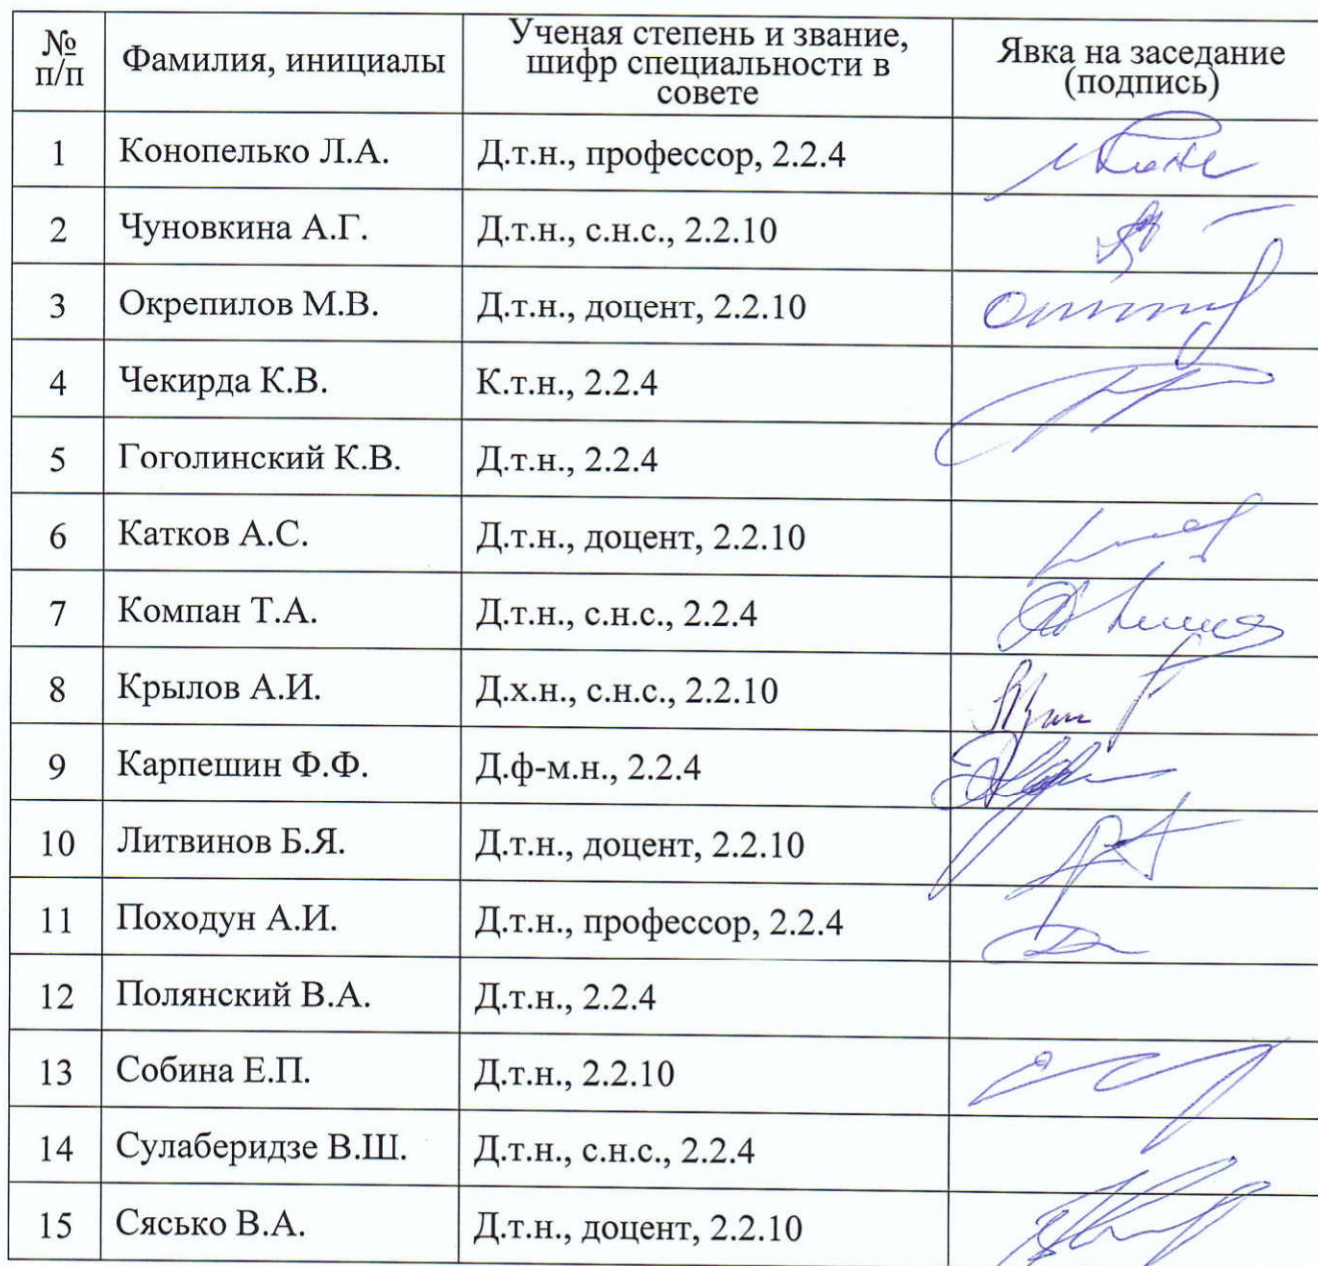 № п/п Фамилия, инициалы Ученая степень и звание, шифр специальности в совете Явка на заседание (подпись)
1 Конопелько Л.А. Д.т.н., профессор, 2.2.4
2 Чуновкина А.Г. Д.т.н., с.н.с., 2.2.10
3 Окрепилов М.В. Д.т.н., доцент, 2.2.10
4 Чекирда К.В. К.т.н., 2.2.4
5 Гоголинский К.В. Д.т.н., 2.2.4
6 Катков А.С. Д.т.н., доцент, 2.2.10
7 Компан Т.А. Д.т.н., с.н.с., 2.2.4
8 Крылов А.И. Д.х.н., с.н.с., 2.2.10
9 Карпешин Ф.Ф. Д.ф-м.н., 2.2.4
10 Литвинов Б.Я. Д.т.н., доцент, 2.2.10
11 Походун А.И. Д.т.н., профессор, 2.2.4
12 Полянский В.А. Д.т.н., 2.2.4
13 Собина Е.П. Д.т.н., 2.2.10
14 Сулаберидзе В.Ш. Д.т.н., с.н.с., 2.2.4
15 Сясько В.А. Д.т.н., доцент, 2.2.10